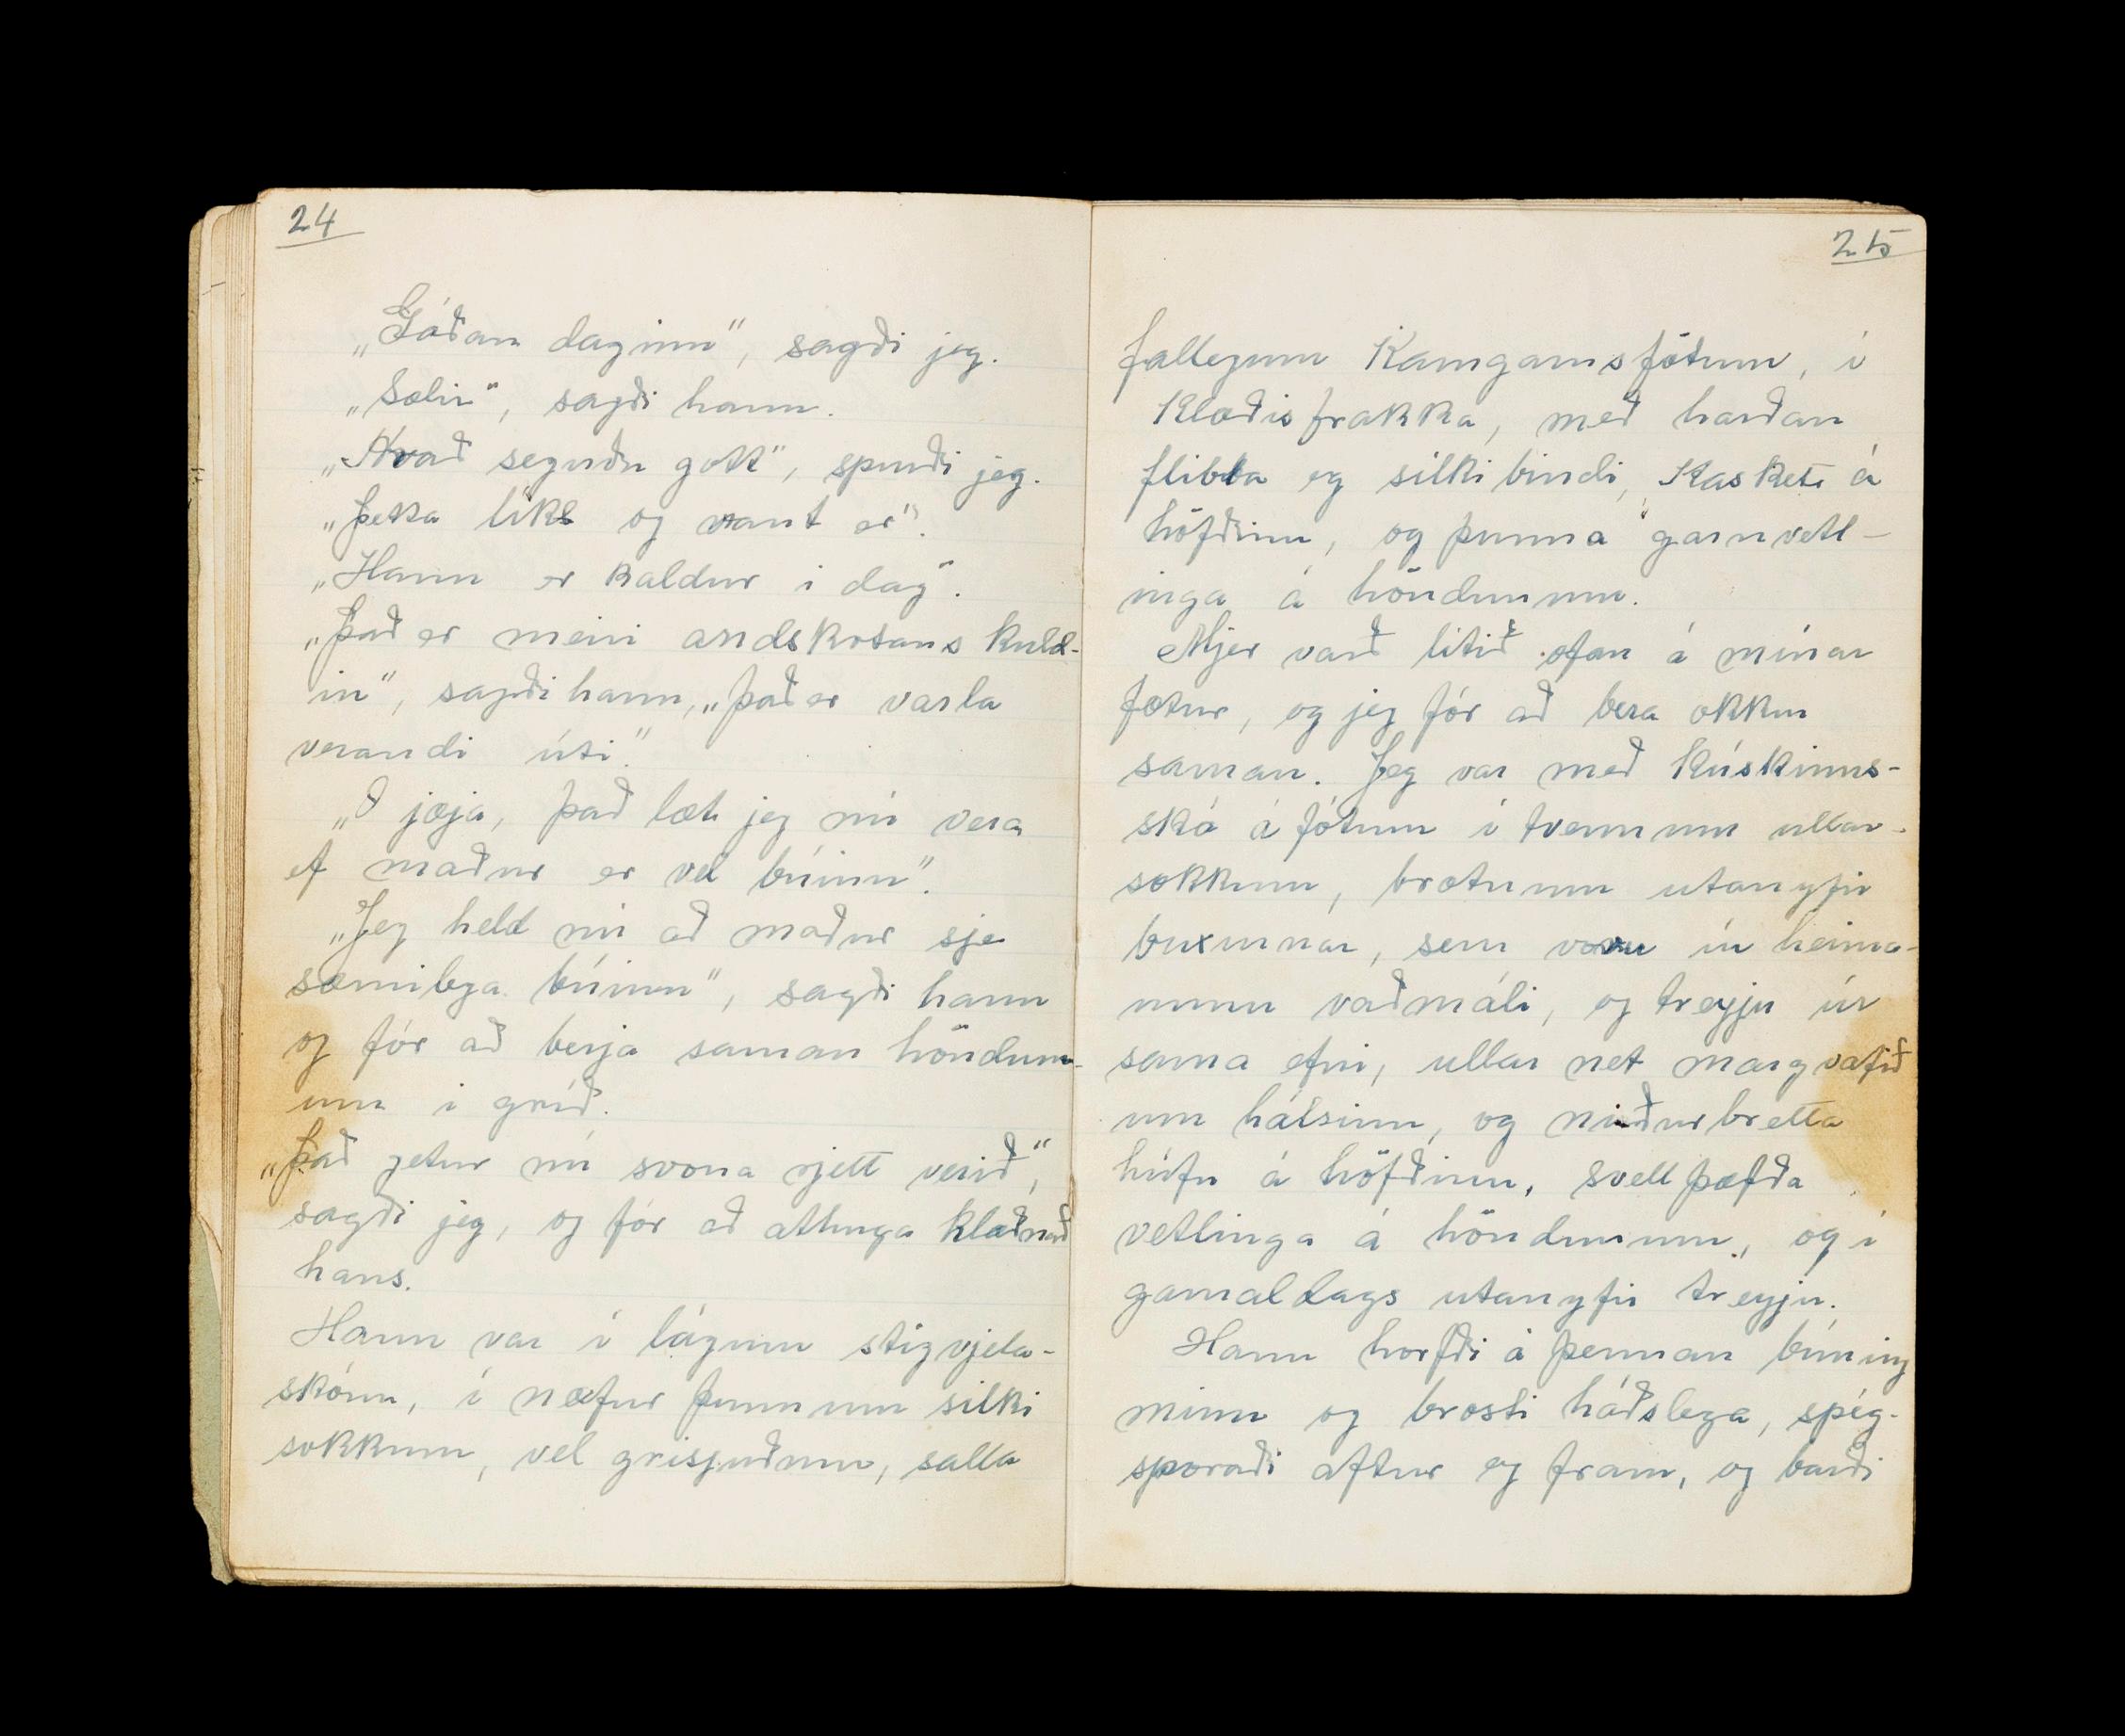 24
„Góðan daginn“, sagði jeg.
„Sælir“, sagði hann.
„Hvað segurðu gott“, spurði jeg.
„Þetta líkt og vant er“.
„Hann er kaldur í dag“.
„Það er meiri andskotans kuld-
in“, sagði hann, „það er varla
verandi úti“.
„O jæja, það læt jeg nú vera
ef maður er vel búinn“.
„Jeg held nú að maður sje
sæmilega búinn“, sagði hann
og fór að berja saman höndun-
um í gríð.
„Það getur nú svona rjett verið“,
sagði jeg, og fór að athuga klæðnað
hans.
Hann var í lágum stígvjela-
skóm, í næfur þunnum silki
sokkum, vel grisjuðum, salla
25
fallegum Kamgarnsfötum, í
Klæðisfrakka, með harðan
flibba og silkibindi, Kasket á
höfðinu, og þunna garnvetl-
inga á höndunum.
Mjer varð litið ofan á mínar
fætur, og jeg fór að bera okkur
saman. Jeg var með Kúskinns-
skó á fótum í tvennum ullar-
sokkum, brotnum utanyfir
buxurnar, sem voru úr heima-
unnu vaðmáli, og treyju úr
sama efni, ullar net margvafið
um hálsinn, og niðurbretta
húfu á höfðinu, svellþæfða
vetlinga á höndunum, og í
gamaldags utanyfir treyju.
Hann horfði á þennan búning
minn og brosti háðslega, spíg-
sporaði aftur og fram, og barði